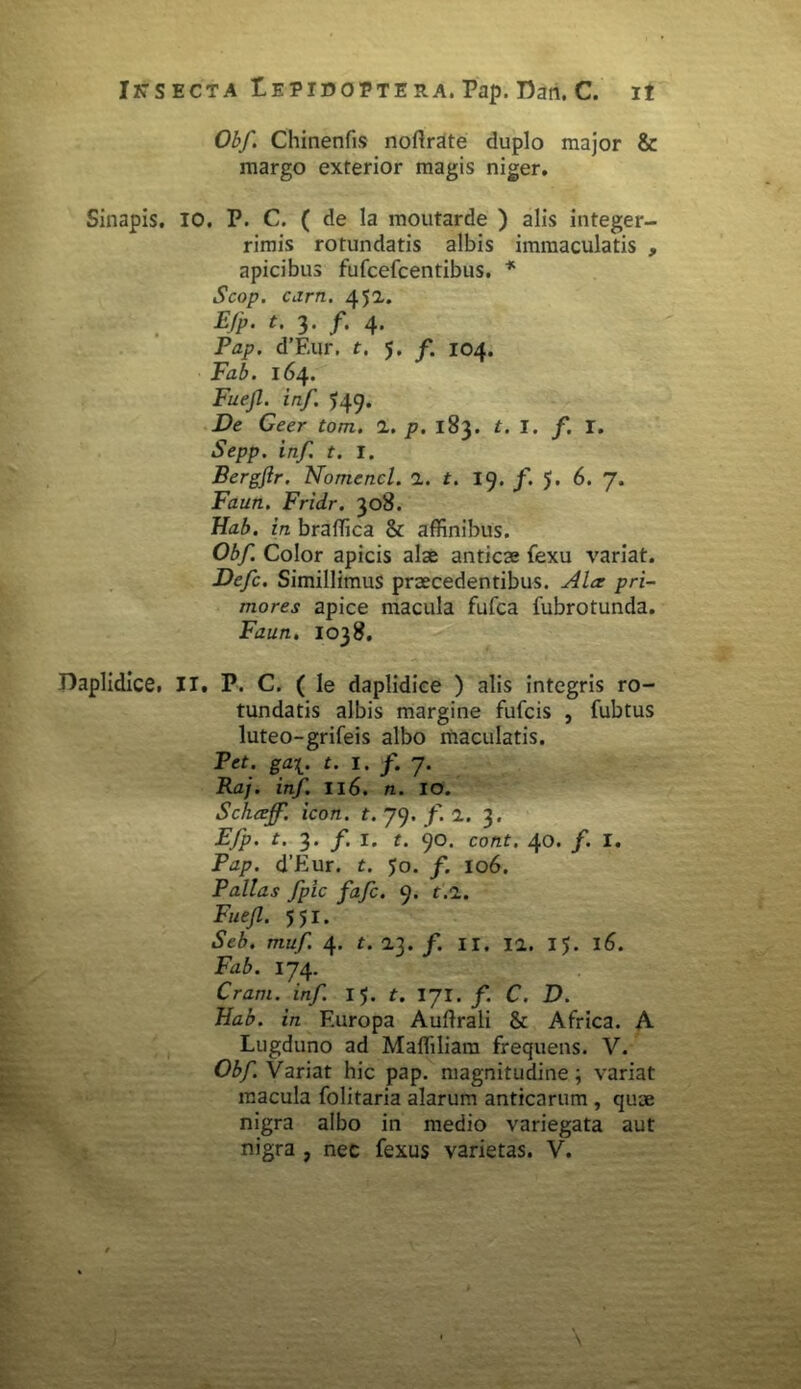 INSECTA LEPIDOPTERA. Pap. Dan. C. 11
Obſ. Chinenſis noſtrate duplo major &
margo exterior magis niger.
Sinapis. 10. P. C. ( de la moutarde ) alis integer-
rimis rotundatis albis immaculatis ,
apicibus fuſceſcentibus. *
Scop. carn. 452.
Eſp. t. 3. f. 4.
Pap. d'Eur. t. 5. f. 104.
Fab. 164.
Fueſl. inſ. 549.
De Geer tom. 2. p. 183. t. 1. f. 1.
Sepp. inſ. t. 1.
Bergſtr. Nomencl. 2. t. 19. f. 5. 6. 7.
Faun. Fridr. 308.
Hab. in braſſica & affinibus.
Obſ. Color apicis alæ anticæ ſexu variat.
Deſc. Simillimus præcedentibus. Alæ pri-
mores apice macula fuſca ſubrotunda.
Faun. 1038.
Daplidice. 11. P. C. ( le daplidice ) alis integris ro-
tundatis albis margine fuſcis , ſubtus
luteo-griſeis albo maculatis.
Pet. gaz. t. 1. f. 7.
Raj. inſ. 116. n. 10.
Schæff. icon. t. 79. f. 2. 3.
Eſp. t. 3. f. 1. t. 90. cont. 40. f. 1.
Pap. d'Eur. t. 50. f. 106.
Pallas ſpic faſc. 9. t.2.
Fueſl. 551.
Seb. muſ. 4. t. 23. f. 11. 12. 15. 16.
Fab. 174.
Cram. inſ. 15. t. 171. f. C. D.
Hab. in Europa Auſtrali & Africa. A
Lugduno ad Maſſiliam frequens. V.
Obſ. Variat hic pap. magnitudine ; variat
macula ſolitaria alarum anticarum , quæ
nigra albo in medio variegata aut
nigra , nec ſexus varietas. V.